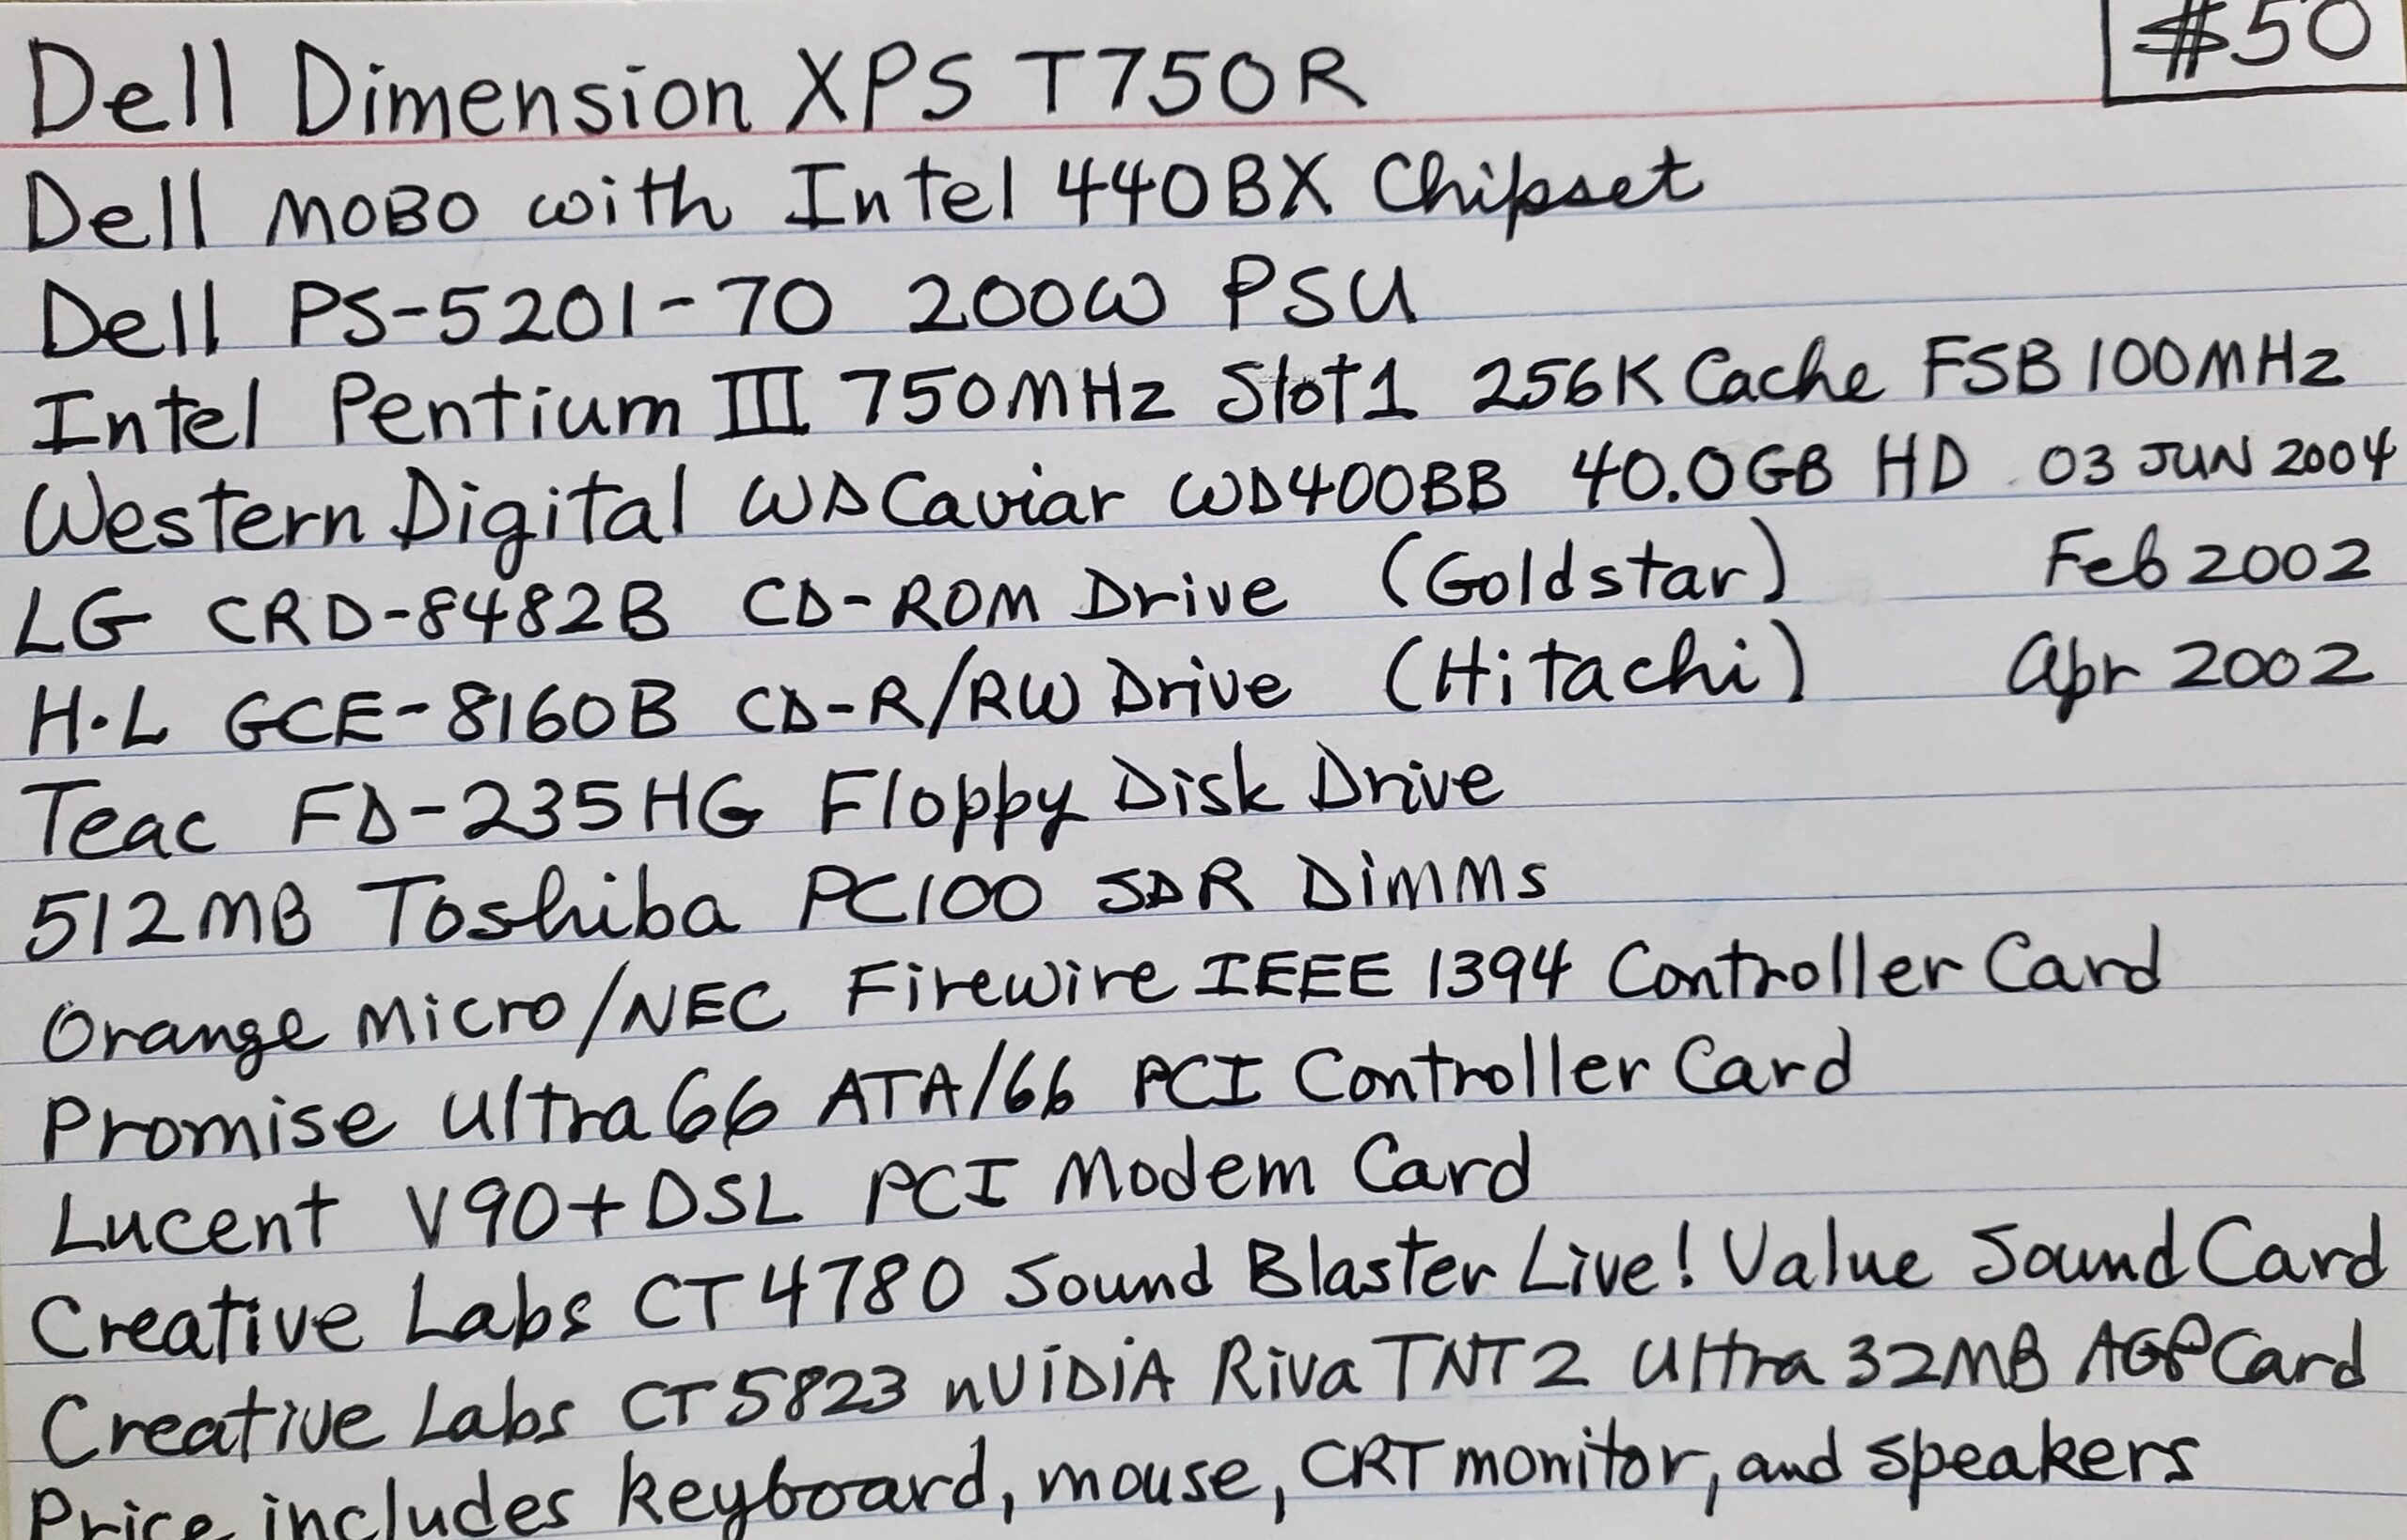 #50
Dell Dimension XPS T750R
Dell MOBO with Intel 440BX Chipset
Dell PS-5201-70 200W PSU
Intel Pentium III 750MHz Slot1 256K Cache FSB 100MHz
Western Digital WD Caviar WD400BB 40.0GB HD 03 JUN 2004
LG CRD-8482B CD-ROM Drive (Goldstar) Feb 2002
H·L GCE-8160B CD-R/RW Drive (Hitachi) Apr 2002
Teac FD-235HG Floppy Disk Drive
512MB Toshiba PC100 SDR Dimms
Orange Micro/NEC Firewire IEEE 1394 Controller Card
Promise Ultra66 ATA/66 PCI Controller Card
Lucent V90+DSL PCI Modem Card
Creative Labs CT4780 Sound Blaster Live! Value Sound Card
Creative Labs CT5823 nVIDIA Riva TNT2 Ultra 32MB AGP Card
Price includes keyboard, mouse, CRT monitor, and speakers